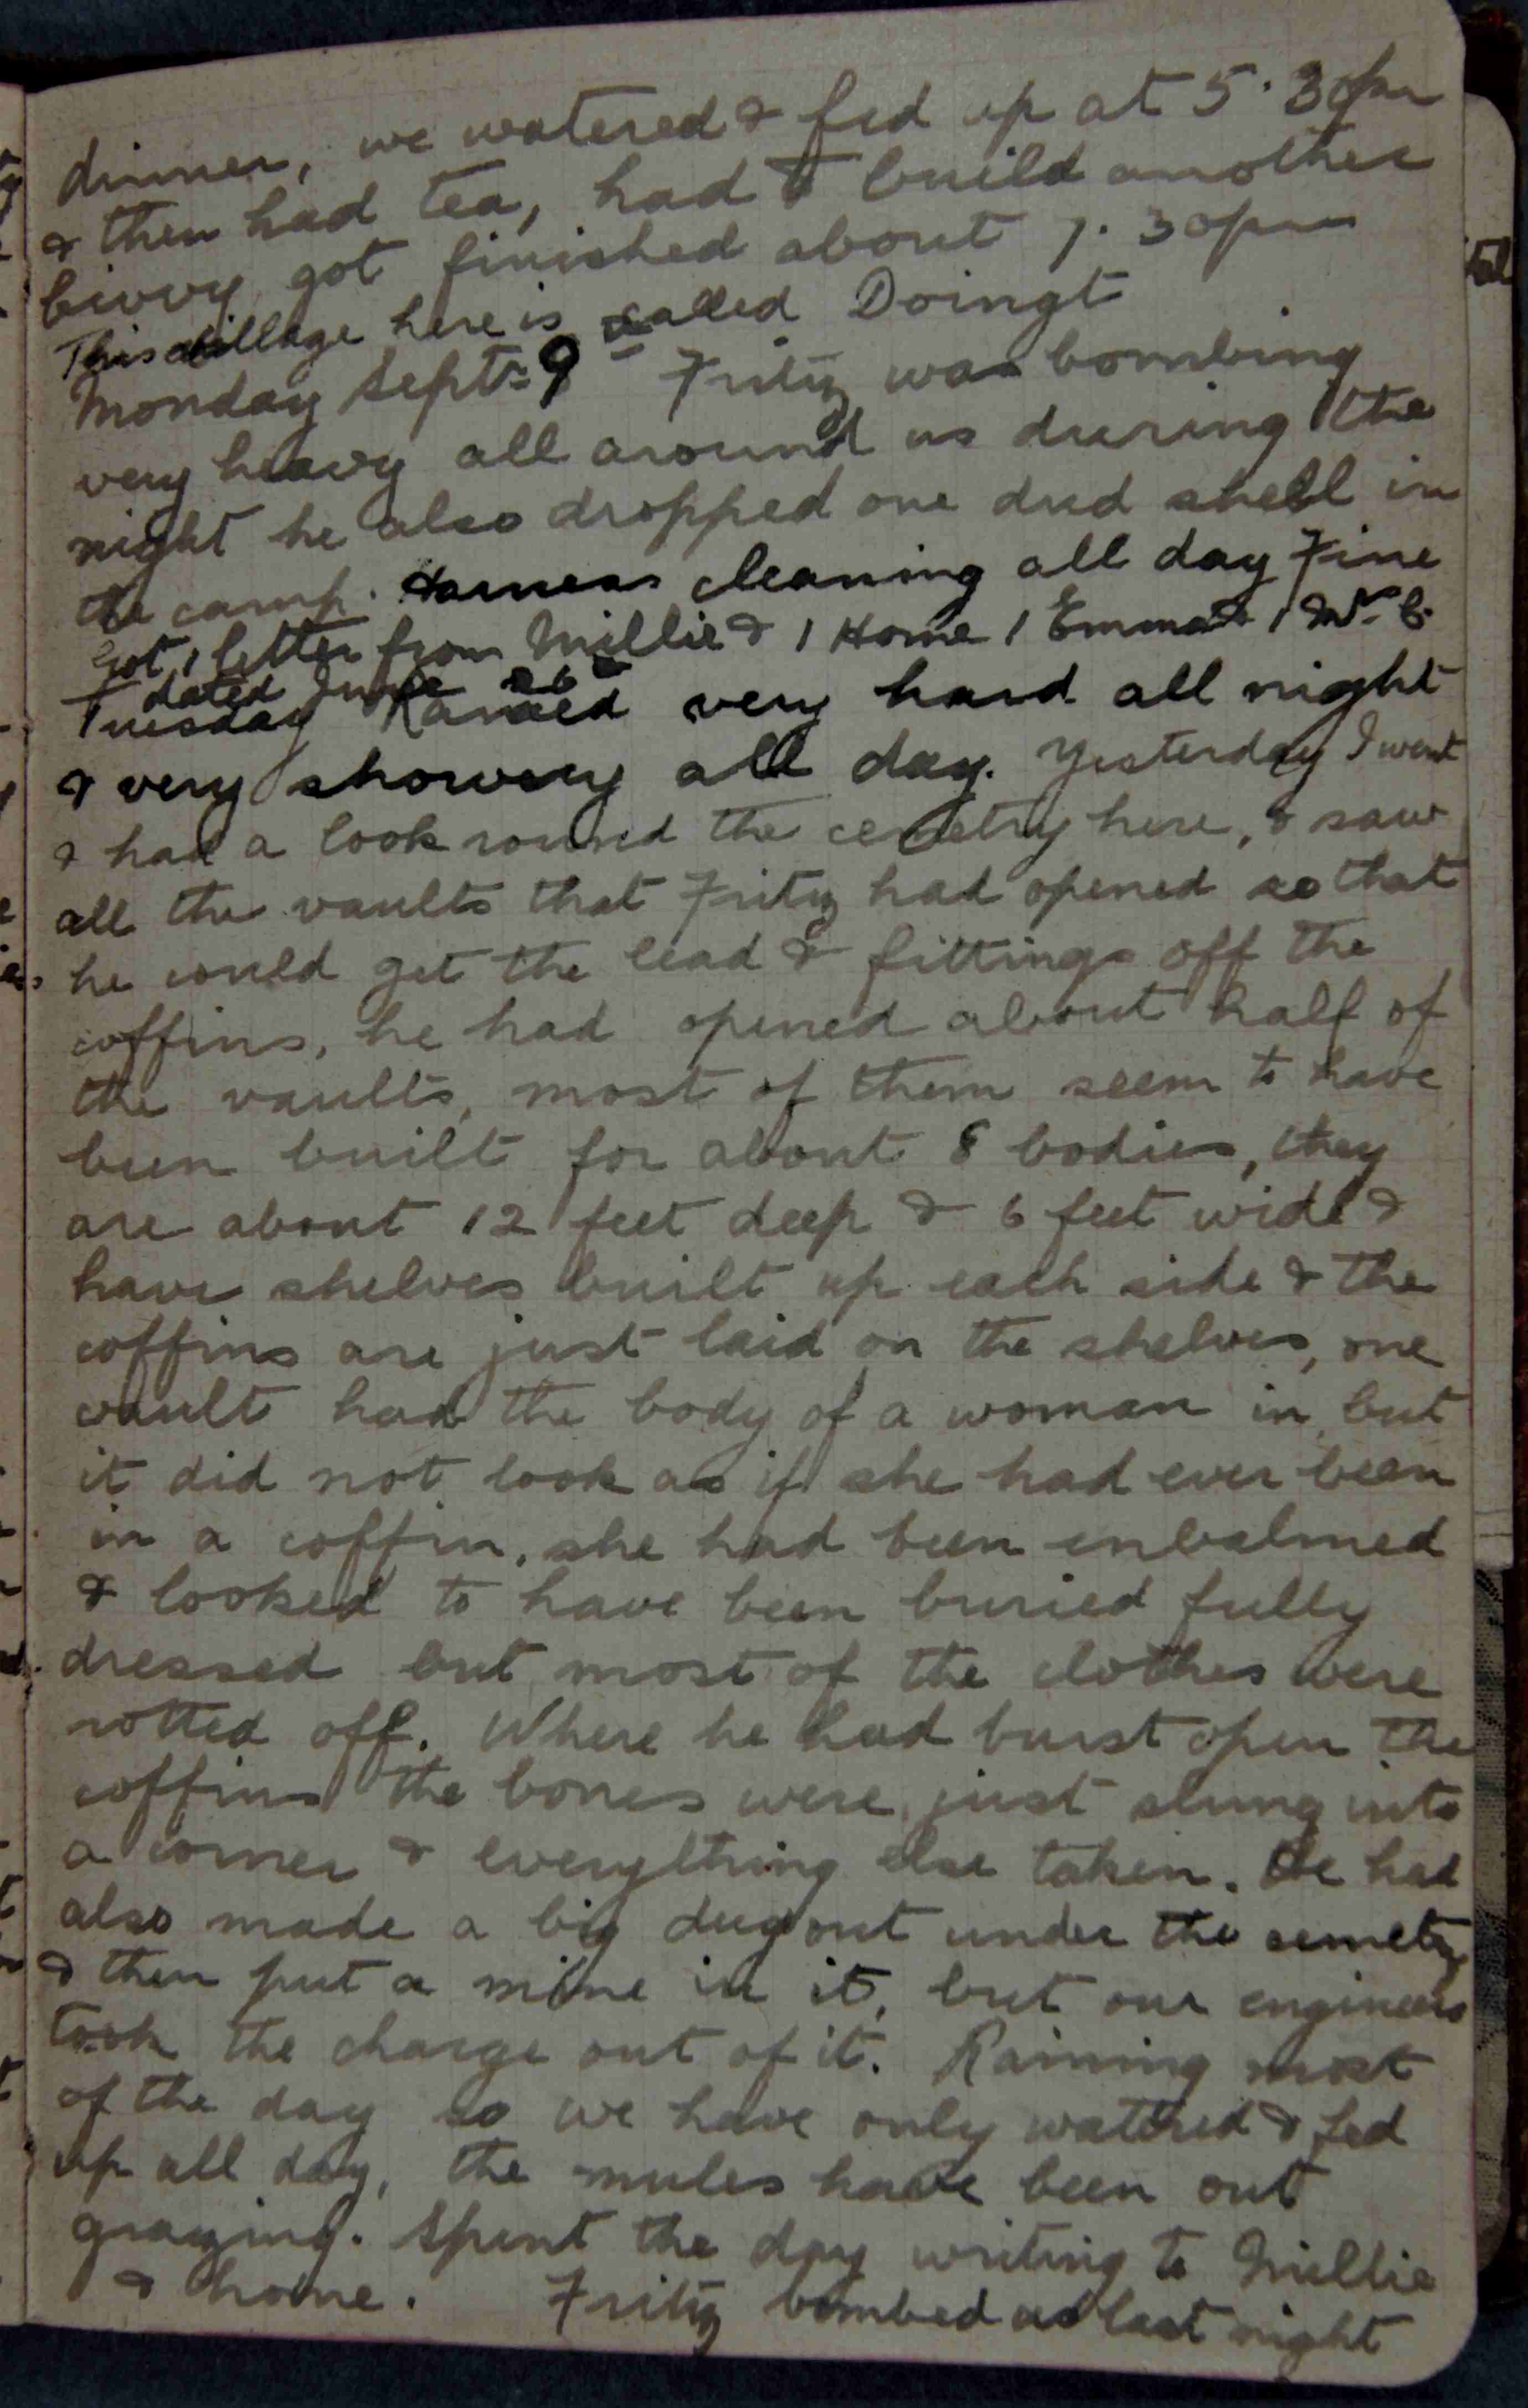 dinner, we watered & fed up at 5.30pm
& then had tea, had to build another
bivvy got finished about 7.30pm
This village here is called Doingt
Monday Sept. 9th Fritz was bombing
very heavy all around us during the
night he also dropped one dud shell in
the camp. Harness cleaning all day Fine
Got 1 letter from Millie & 1 Home 1 Emma & 1 Mr C.
dated June 26
Tuesday Rained very hard all night
& very showery all day. Yesterday I went
& had a look round the cemetry here, & saw
all the vaults that Fritz had opened so that
he could get the lead & fittings off the
coffins, he had opened about half of
the vaults, most of them seem to have
been built for about 8 bodies, they
are about 12 feet deep & 6 feet wide &
have shelves built up each side & the
coffins are just laid on the shelves, one
vault had the body of a woman in but
it did not look as if she had ever been
in a coffin, she had been enbalmed
& looked to have been buried fully
dressed but most of the clothes were
rotted off. Where he had burst open the
coffins the bones were just slung into
a corner & everything else taken. He had
also made a big dugout under the cemetry
& then put a mine in it, but our engineers
took the charge out of it. Raining most
of the day so we have only watered & fed
up all day, the mules have been out
grazing. Spent the day writing to Millie
& home. Fritz bombed as last night